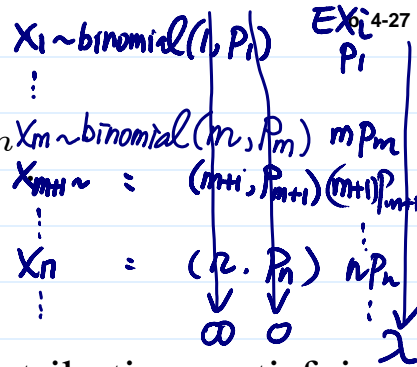 EXi p. 4-27
X1 ~ binomial(1, P1) P1
⋮
n Xm ~ binomial(m, Pm) mPm
Xm+1 ~ : (m+1, Pm+1) (m+1)Pm+1
⋮ ⋮
Xn : (n, Pn) nPn
⋮ ⋮
∞ 0 λ